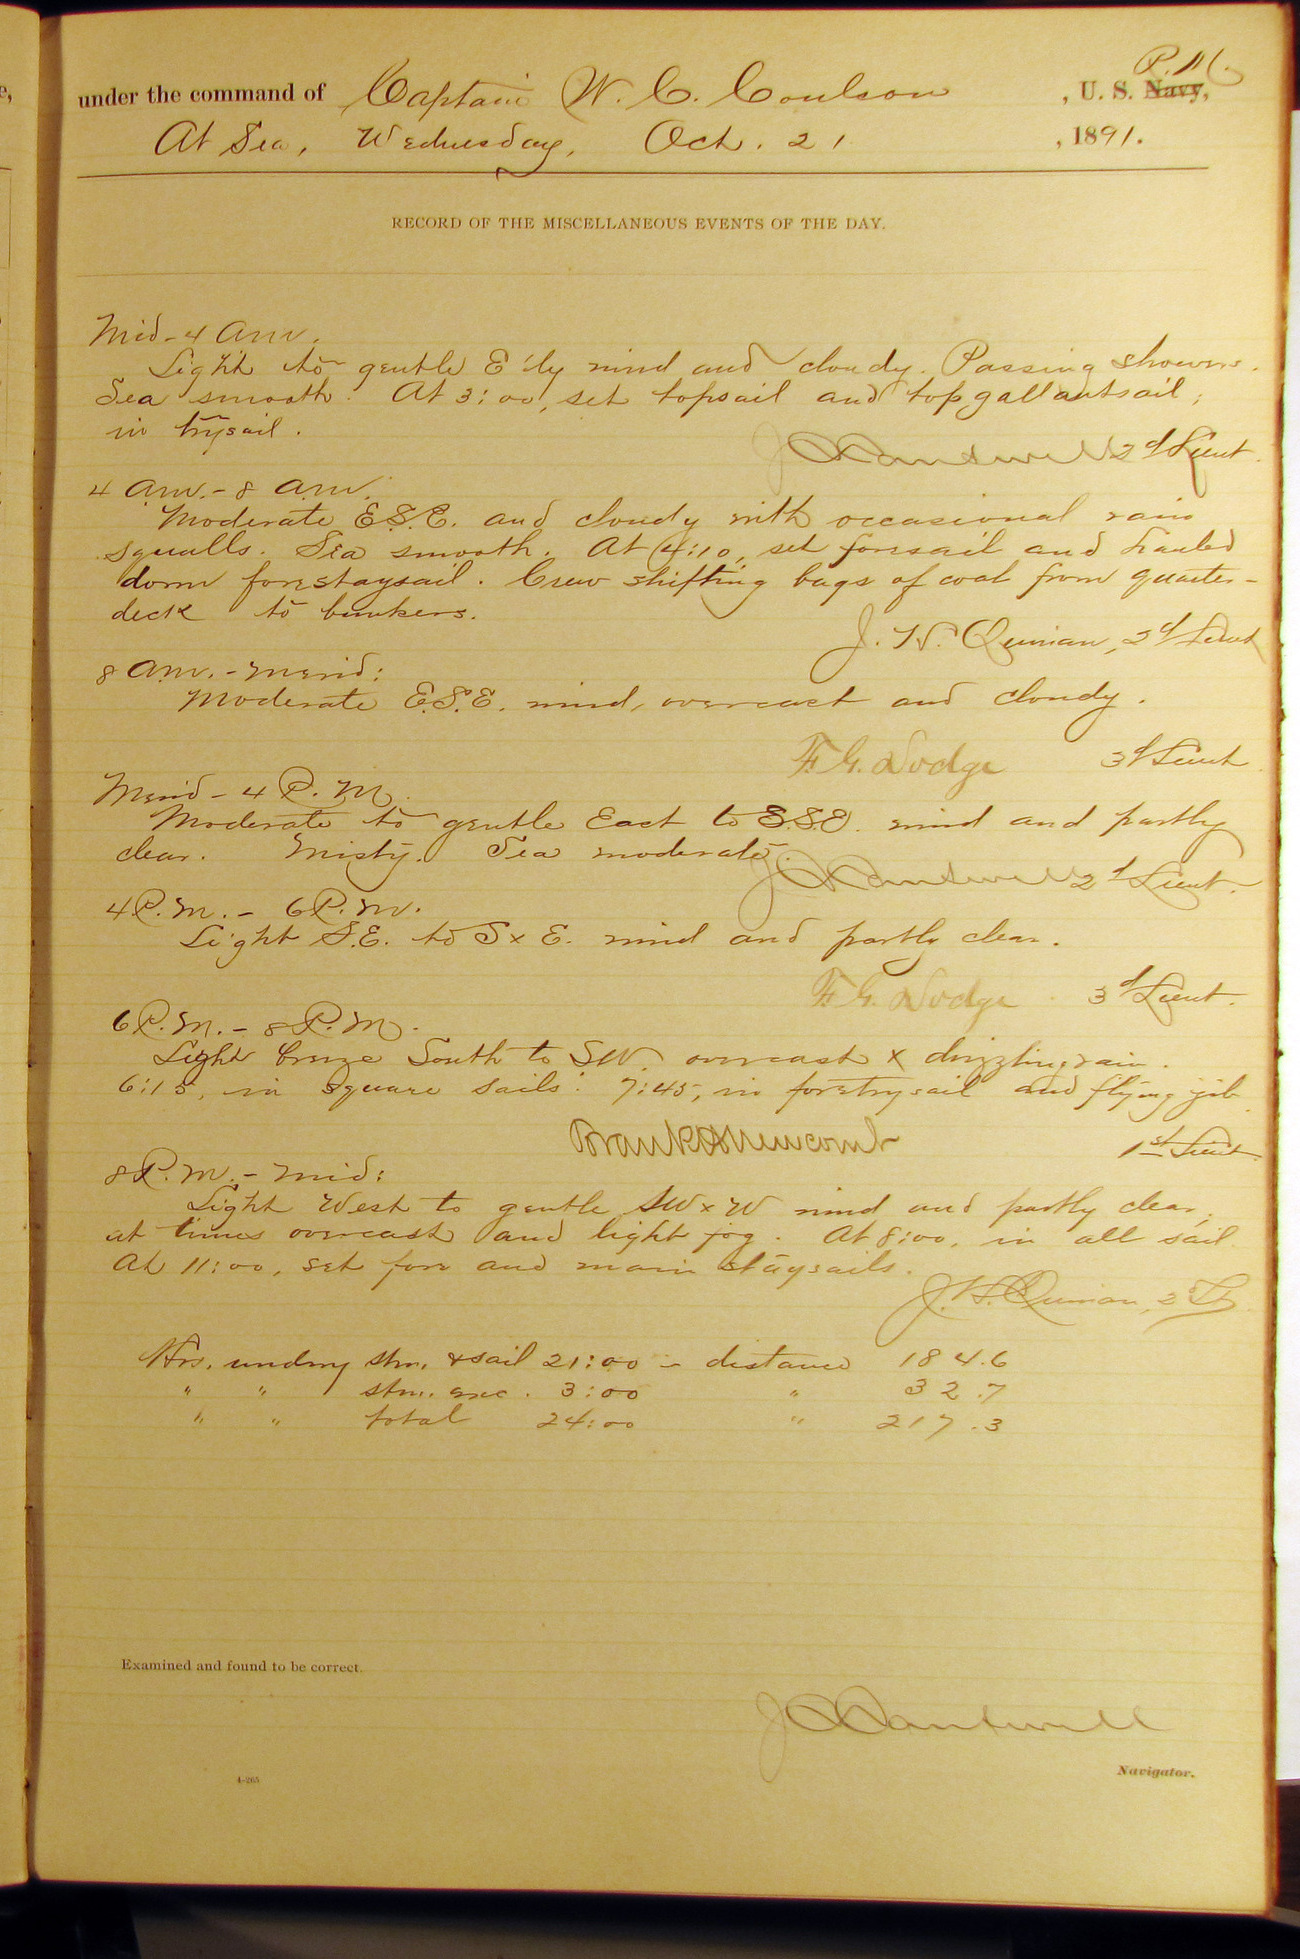 e,
R. M.
under the command of Captain W. C. Coulson, U. S. Navy,
At Sea, Wednesday, Oct. 21, 1891.
RECORD OF THE MISCELLANEOUS EVENTS OF THE DAY.
Mid - 4 am.
Light to gentle E'ly wind and cloudy. Passing showers.
Sea smooth. At 3:00, set topsail and topgallantsail;
in trysail.
J C Cantwell 2d Lieut.
4 am. - 8 am.
Moderate E.S.E. and cloudy with occasional rain
squalls. Sea smooth. At 4:10, set foresail and hauled
down forestaysail. Crew shifting bags of coal from quarter-
deck to bunkers.
J. H. Quinan, 2d Lieut
8 am. - merid:
Moderate E.S.E. wind, overcast and cloudy.
F. G. Dodge 3d Lieut
Merid - 4 P. M.
Moderate to gentle East to E.S.E. wind and partly
clear. Misty. Sea moderate.
J C Cantwell 2d Lieut.
4 P. M. - 6 P. M.
Light S.E. to S x E. wind and partly clear.
F. G. Dodge 3d Lieut.
6 P. M. - 8 P. M.
Light breeze South to SW. overcast x drizzling rain.
6:15, in square sails. 7:45, in foretrysail and flying jib
Frank H Newcomb 1st Lieut
8 P. M. - mid:
Light West to gentle SW x W wind and partly clear,
at times overcast and light fog. At 8:00, in all sail.
At 11:00, set fore and main staysails.
J. H. Quinan, 2d Lt
Hrs. underway stm. & sail 21:00 - distance 184.6
" " stm. exc. 3:00 " 32.7
" " total 24:00 " 217.3
Examined and found to be correct.
J C Cantwell
Navigator.
4-265